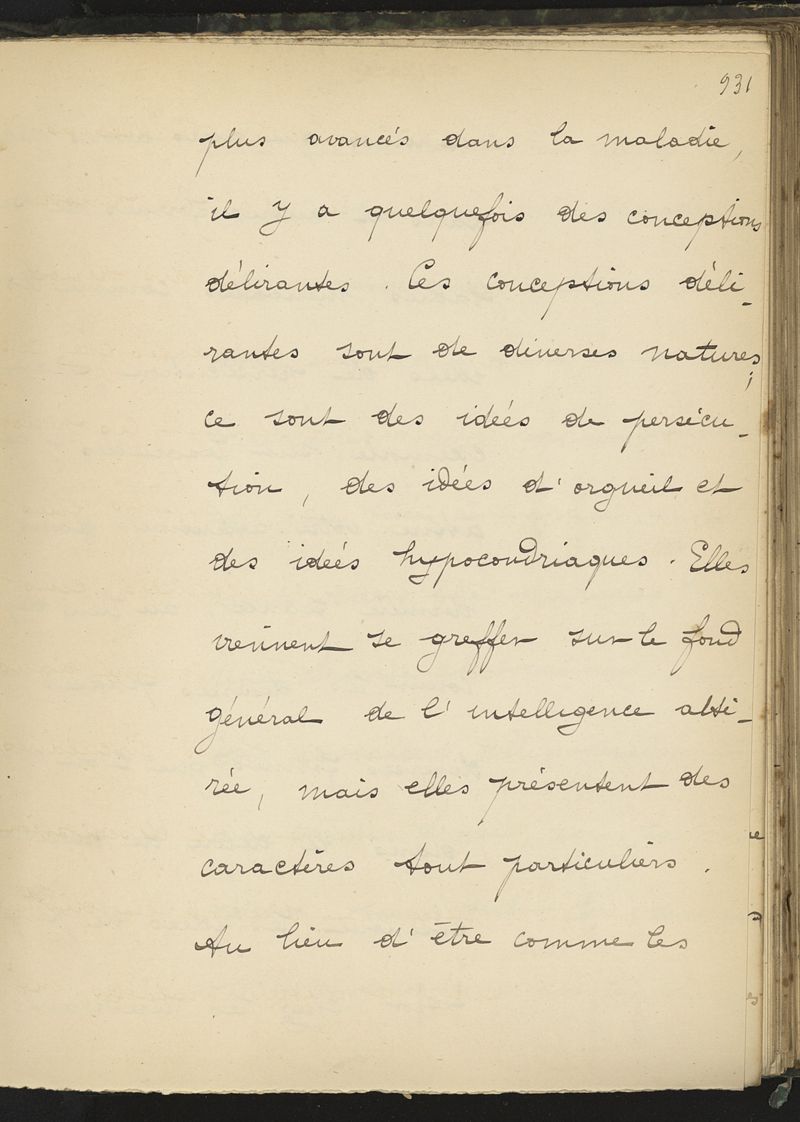 931
plus avancés dans la maladie,
il y a quelquefois des conceptions
délirantes. Ces conceptions déli-
rantes sont de diverses natures;
ce sont des idées de persécu-
tion, des idées d'orgueil et
des idées hypocondriaques. Elles
viennent se greffer sur le fond
général de l'intelligence alté-
rée, mais elles présentent des
caractères tout particuliers.
Au lieu d'être comme les